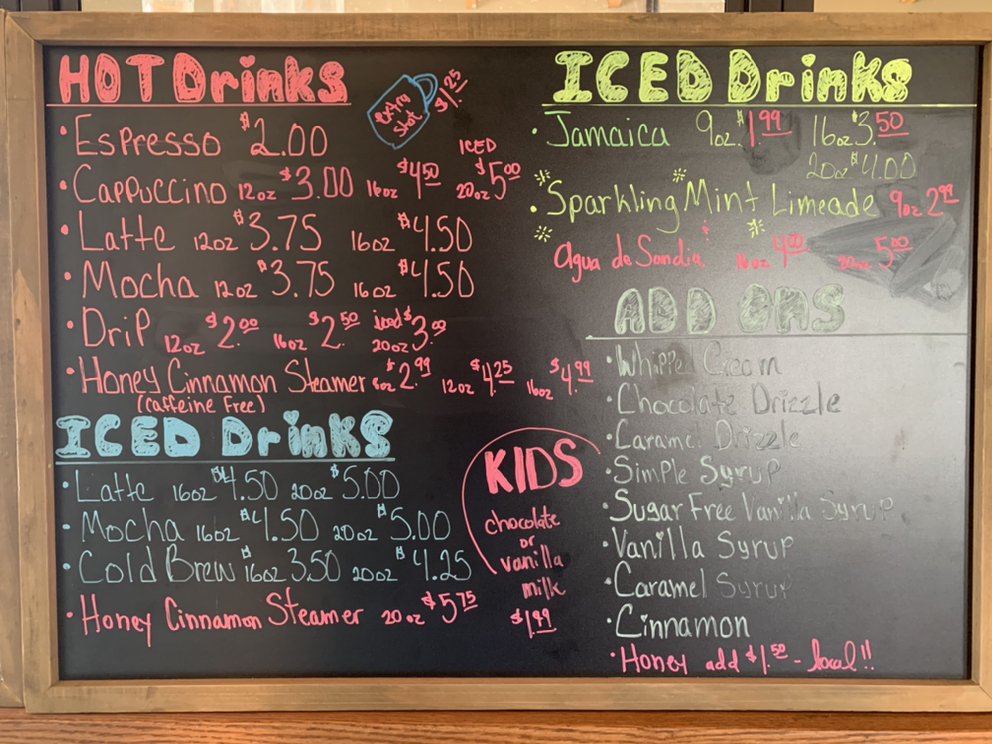 HOT Drinks
extra shot $1.25
• Espresso $2.00
ICED
• Cappuccino 12oz $3.00 16oz $4.50 20oz $5.00
• Latte 12oz $3.75 16oz $4.50
• Mocha 12oz $3.75 16oz $4.50
• Drip 12oz $2.00 16oz $2.50 iced 20oz $3.00
• Honey Cinnamon Steamer 8oz $2.99 12oz $4.25 16oz $4.99
(caffeine Free)
ICED Drinks
• Latte 16oz $4.50 20oz $5.00
• Mocha 16oz $4.50 20oz $5.00
• Cold Brew 16oz $3.50 20oz $4.25
• Honey Cinnamon Steamer 20oz $5.75
KIDS
chocolate
or
vanilla
milk
$1.99
ICED Drinks
• Jamaica 9oz. $1.99 16oz $3.50
20oz $4.00
• Sparkling Mint Limeade 9oz 2.99
Agua de Sandia 16oz 4.00 20oz 5.00
ADD ONS
• Whipped Cream
• Chocolate Drizzle
• Caramel Drizzle
• Simple Syrup
• Sugar Free Vanilla Syrup
• Vanilla Syrup
• Caramel Syrup
• Cinnamon
• Honey add $1.50 - local!!